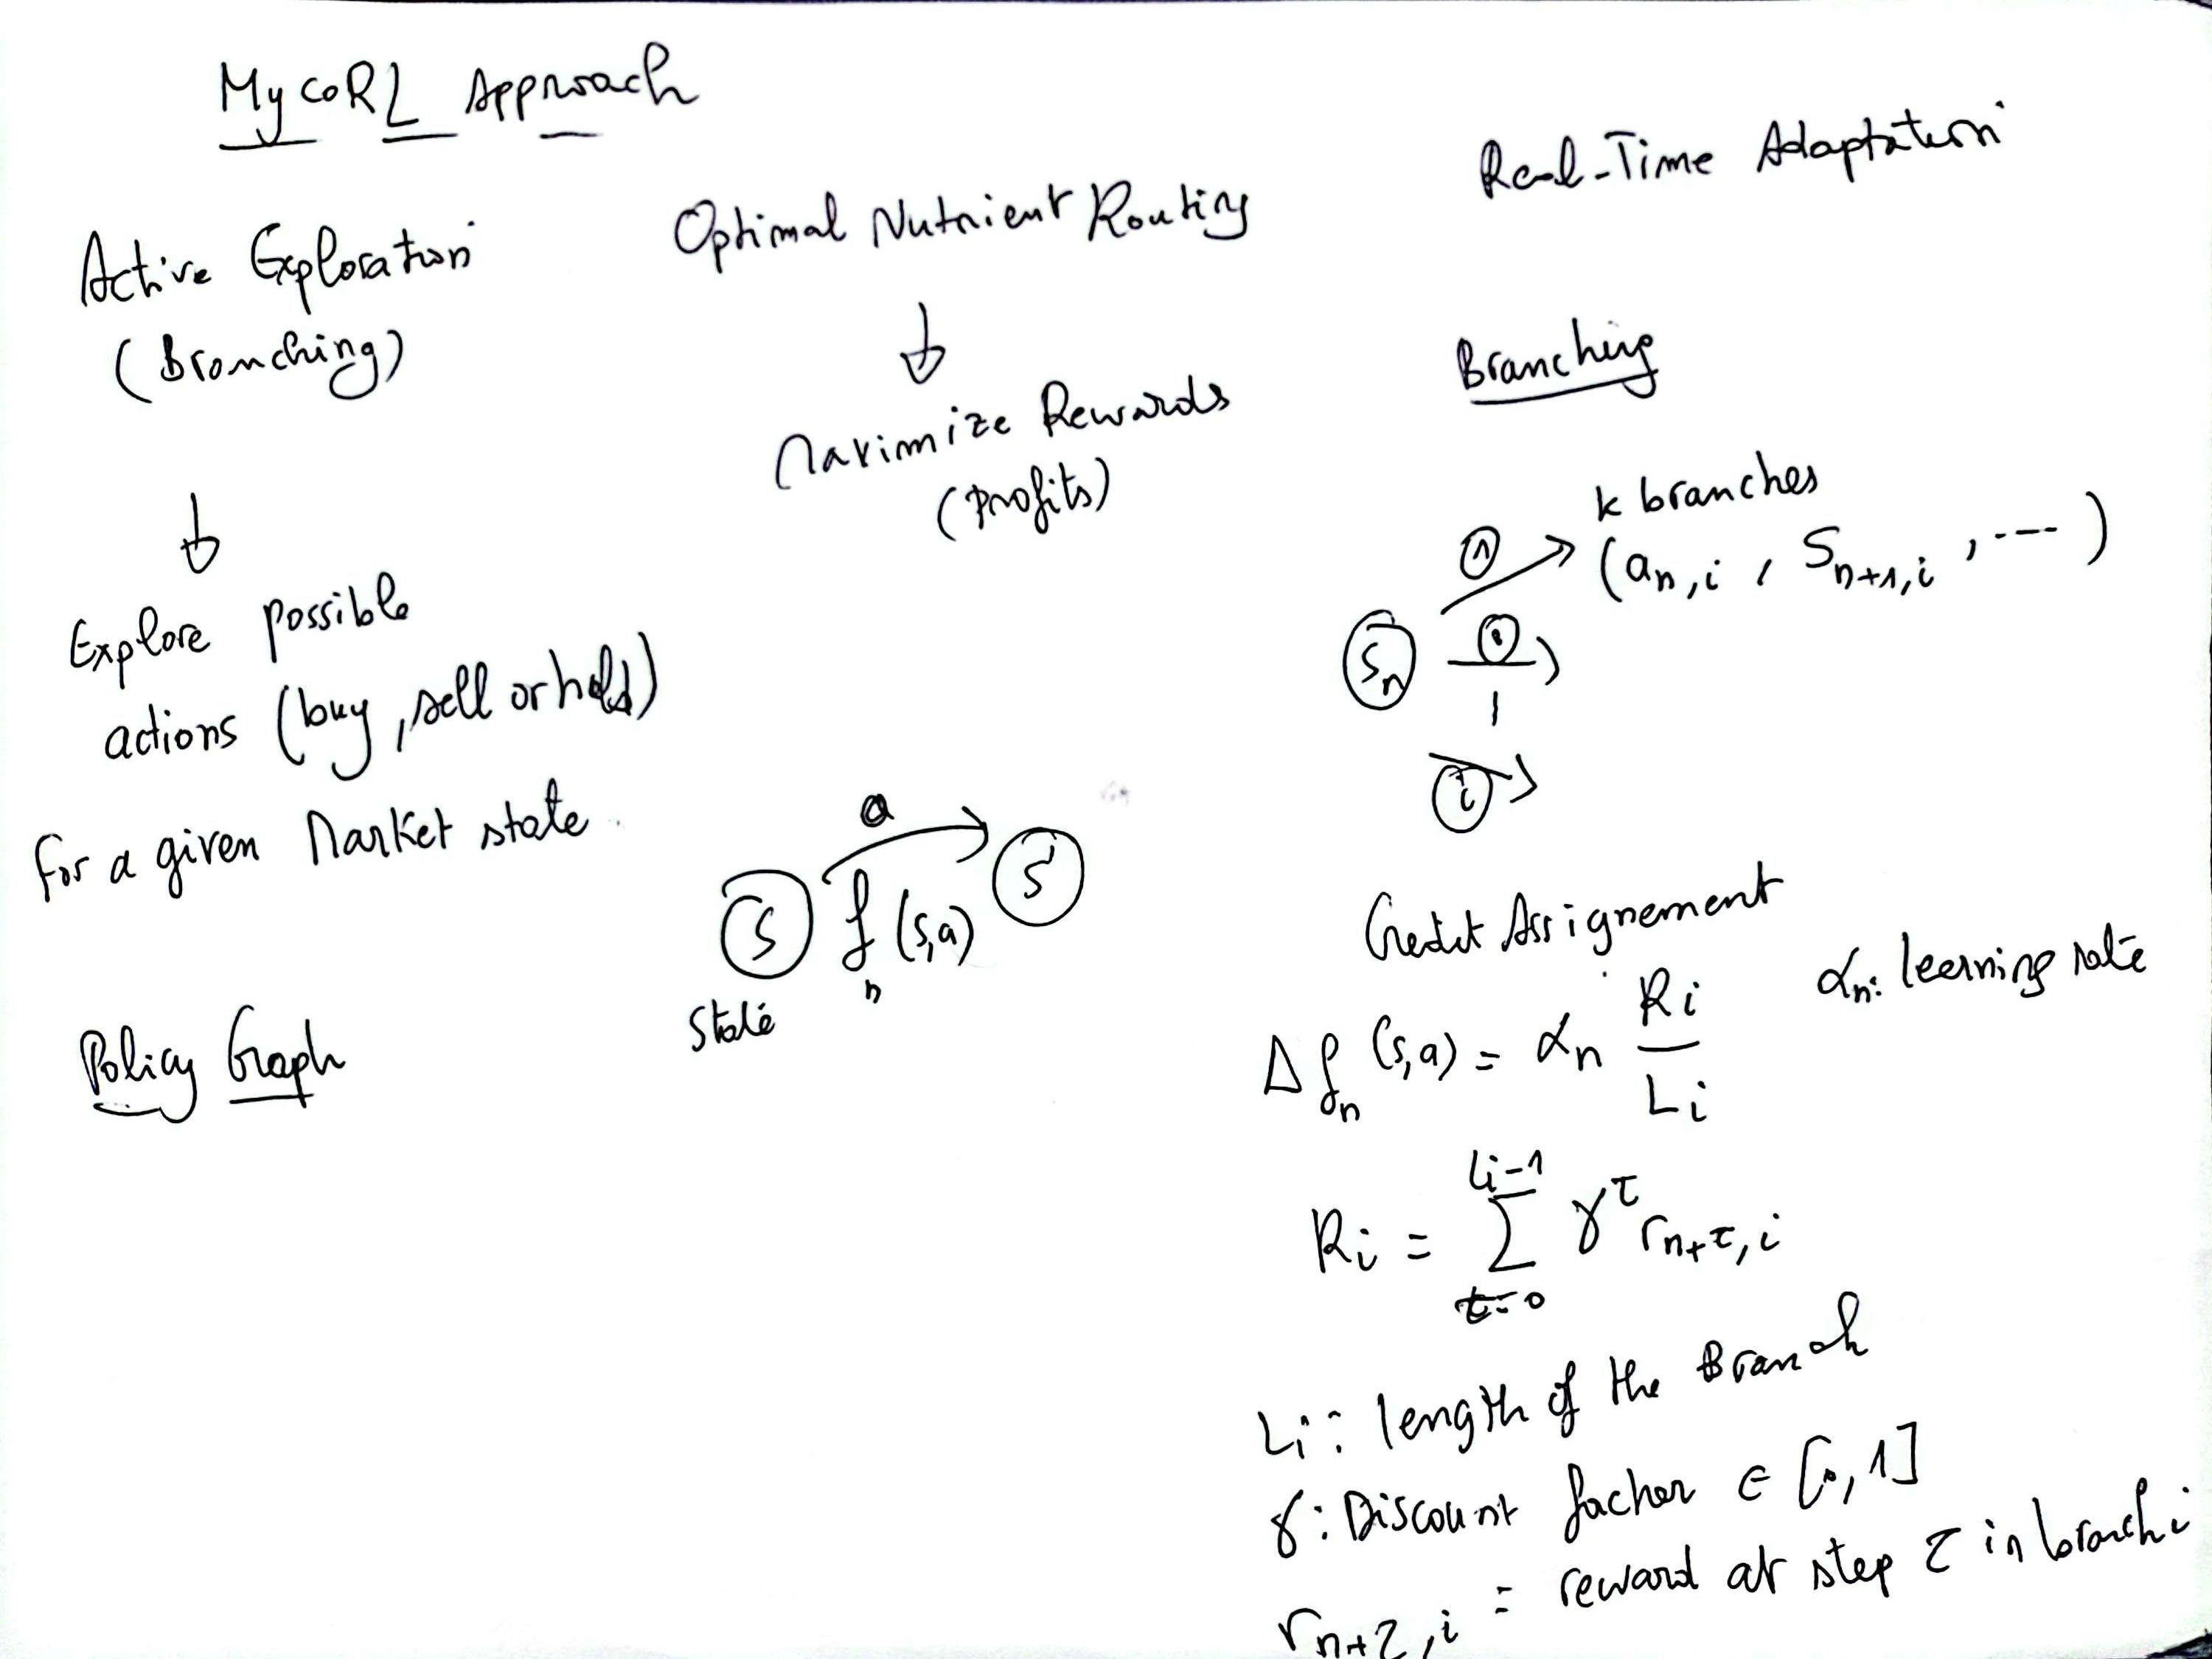 MycoRL Approach
Active Exploration
(Branching)
Explore possible
actions (buy, sell or hold)
for a given Market state
Policy Graph
Optimal Nutrient Routing
Maximize Rewards
(Profits)
a
S f_n (s,a) S'
State
Real-Time Adaptation
Branching
k branches
(a_{n,i} , S_{n+1,i} , ---- )
1
S_n
i
Credit Assignement
Δf_n (s,a) = α_n R_i / L_i α_n: learning rate
R_i = Σ_{τ=0}^{L_i-1} γ^τ r_{n+τ,i}
L_i: length of the Branch
γ: Discount factor ∈ [0,1]
r_{n+τ,i} : reward at step τ in branch i